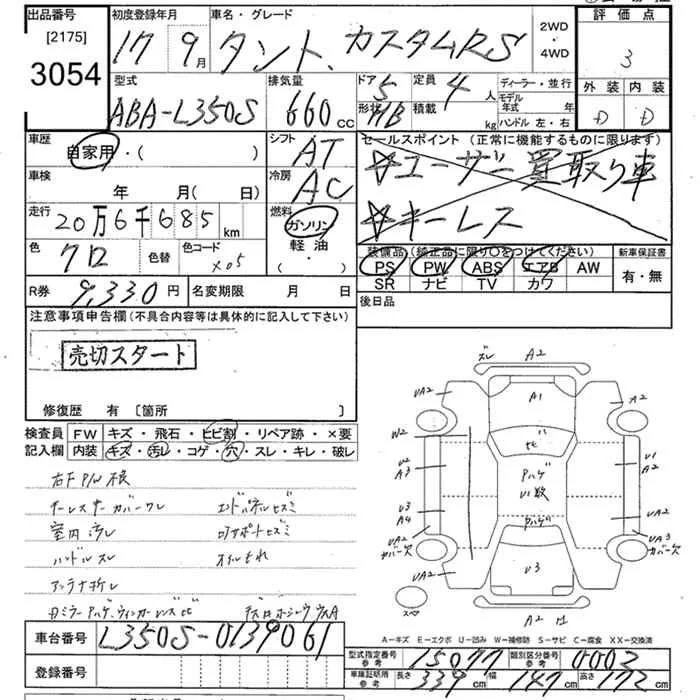 出品番号
[2175]
3054
初度登録年月 17年 9月
車名・グレード タント カスタムRS
2WD・4WD
評価点 3
型式 ABA-L350S
排気量 660cc
ドア 5 形状 HB
定員 4人 積載 kg
ディーラー・並行
モデル年式 年
ハンドル 左・右
外装 内装
D D
車歴 自家用・( )
シフト AT
セールスポイント (正常に機能するものに限ります)
☆ユーザー買取り車
☆キーレス
車検 年 月(日)
冷房 AC
走行 20万6千685km
燃料 ガソリン
軽油
(・)
色 クロ 色替 色コード X05
装備品 (純正品に限り○をつけてください)
新車保証書
PS PW ABS エアB AW
SR ナビ TV カワ
有・無
R券 9,330円 名変期限 月 日
後日品
注意事項申告欄(不具合内容等は具体的に記入して下さい)
売切スタート
修復歴 有 [箇所 ]
検査員 FW キズ・飛石・ヒビ割・リペア跡・×要
記入欄 内装 キズ・汚レ・コゲ・穴・スレ・キレ・破レ
室内汚レ
ハンドルスレ
アンテナ折レ
ズレ A2
UA2 A1 A2
W2 ヒビ
U2 A3 Pハゲ U1 A2
U1数
U3 A4 Pハゲ UA2
UA2 カバー欠 UA3 カバー欠
UA2 U3 UA2
スペア
A2
A-キズ E-エクボ U-凹み W-補修跡 S-サビ C-腐食 XX-交換済
車台番号 L350S-0139061
登録番号
型式指定番号 参考 15077
類別区分番号 参考 0003
車庫証明所 参考 長さ 339cm 幅 147cm 高さ 172cm